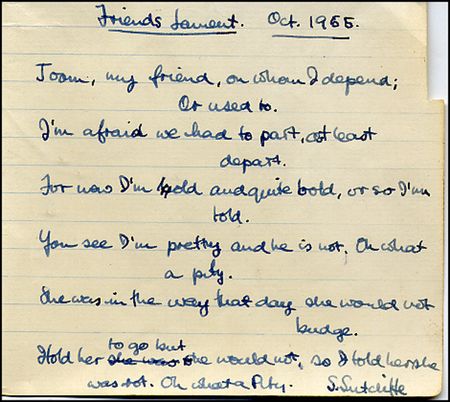 Friends Lament. Oct. 1965.
Joom, my friend, on whom I depend;
Or used to.
I'm afraid we had to part, at least
depart.
For now I'm old and quite bold, or so I'm
told.
You see I'm pretty and he is not, Oh what
a pity.
She was in the way that day she would not
budge.
to go but
I told her she was she would not, so I told her she
was rot. Oh what a Pity. S. Sutcliffe